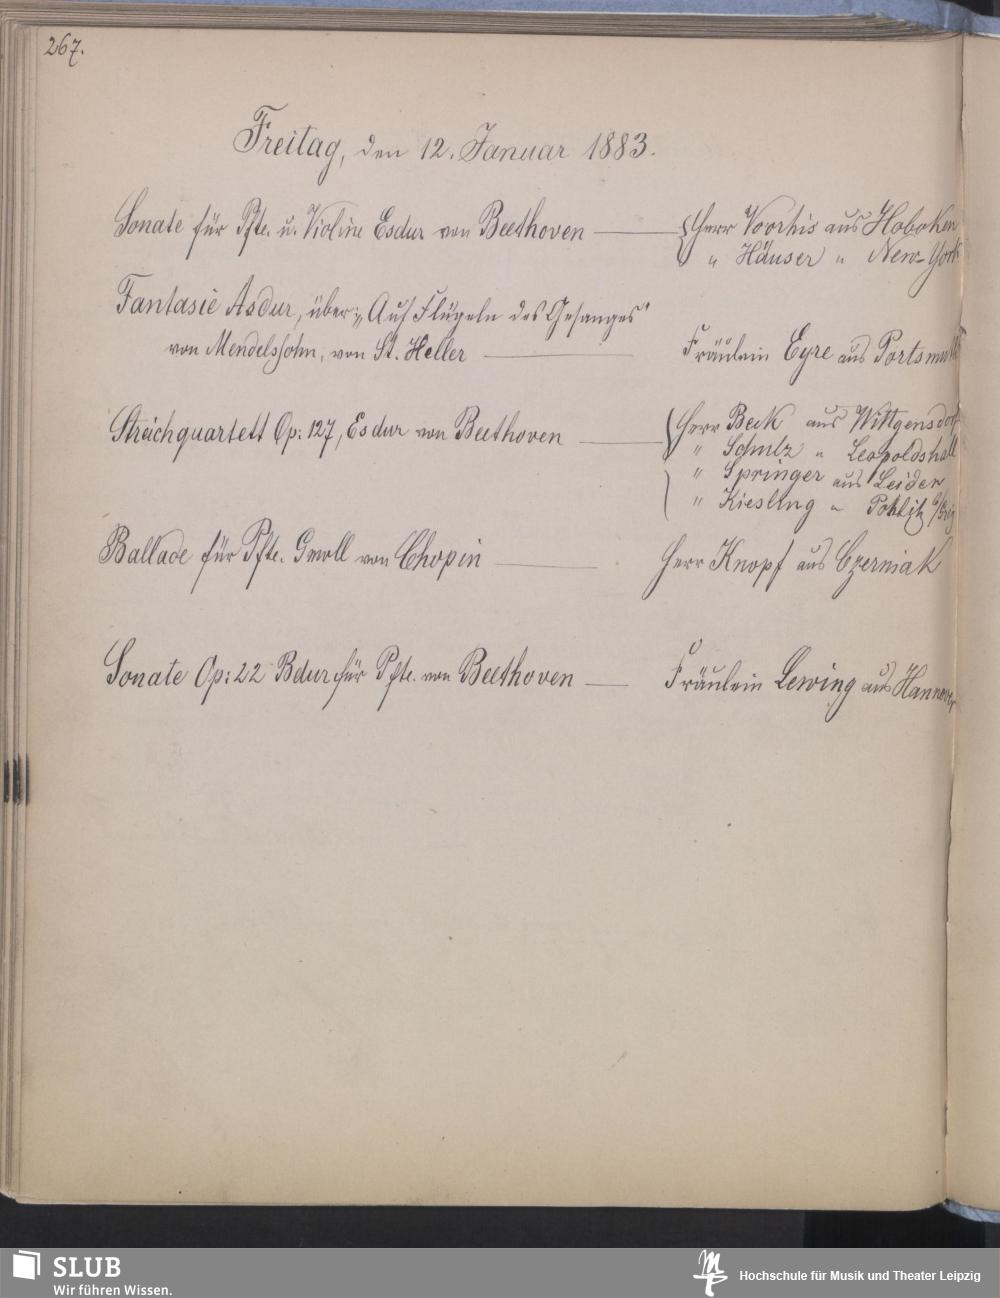 267.
Freitag, den 12. Januar 1883.
Sonate für Pfte. u. Violine Esdur von Beethoven — Herr Voorhis aus Hoboken
" Häuser " New-York
Fantasie Asdur, über: „Auf Flügeln des Gesanges"
von Mendelssohn, von St. Heller — Fräulein Eyre aus Portsmouth
Streichquartett Op: 127, Esdur von Beethoven — Herr Beck aus Wittgensdorf
" Schulz " Leopoldshall
" Springer aus Leiden
" Kiesling "
Ballade für Pfte. Gmoll von Chopin — Herr Knopf aus Czerniak
Sonate Op: 22 Bdur für Pfte. von Beethoven — Fräulein Lewing aus Hannover
SLUB
Wir führen Wissen.
Hochschule für Musik und Theater Leipzig